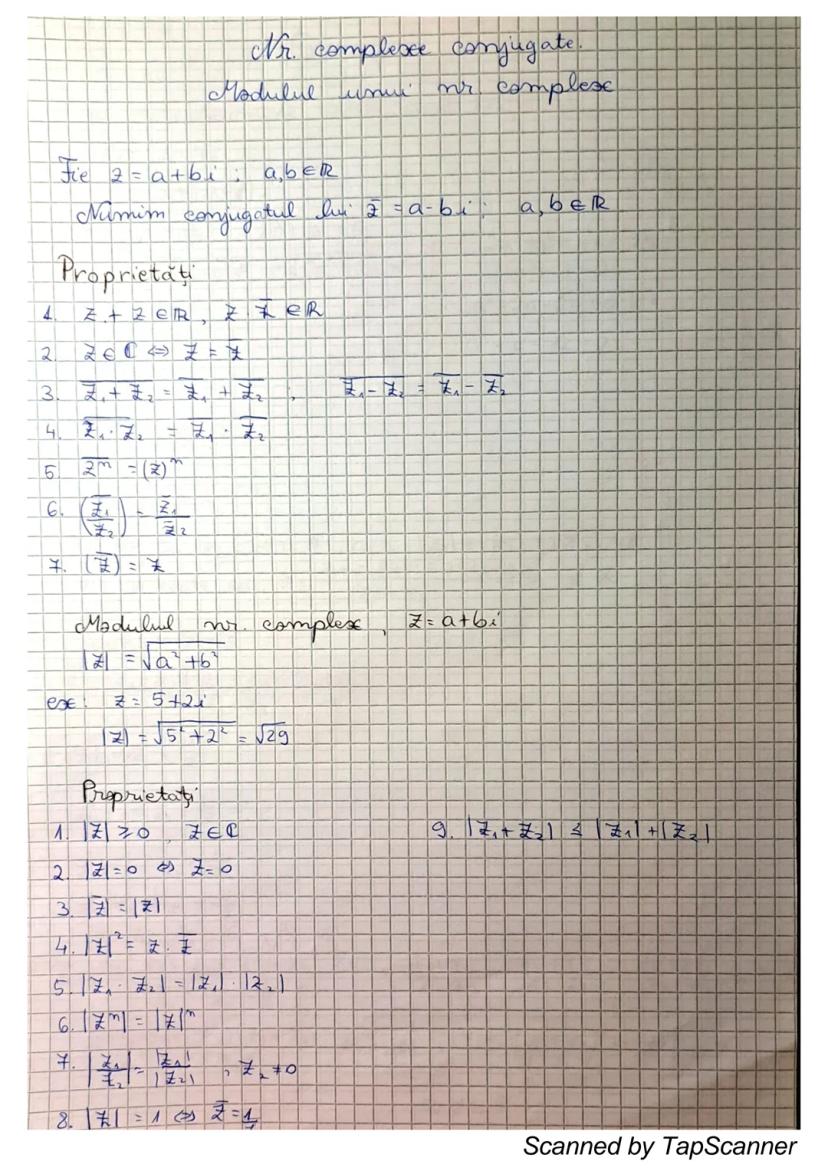 Nr. complexe conjugate.
Modulul unui nr. complex
Fie z = a+bi ; a,b ∈ ℝ
Numim conjugatul lui z̄ = a-bi ; a,b ∈ ℝ
Proprietăți
1. z + z ∈ ℝ, z z̄ ∈ ℝ
2. z ∈ ℂ ⇔ z = z̄
3. \overline{z₁ + z₂} = \overline{z₁} + \overline{z₂} ; \overline{z₁ - z₂} = \overline{z₁} - \overline{z₂}
4. \overline{z₁ · z₂} = \overline{z₁} · \overline{z₂}
5. \overline{zⁿ} = (z̄)ⁿ
6. (\overline{z₁/z₂}) = z̄₁/z̄₂
7. (\overline{z̄}) = z
Modulul nr. complex, z = a+bi
|z| = √(a² + b²)
ex: z = 5+2i
|z| = √(5² + 2²) = √29
Proprietați
1. |z| ≥ 0, z ∈ ℂ
2. |z| = 0 ⇔ z = 0
3. |z̄| = |z|
4. |z|² = z · z̄
5. |z₁ · z₂| = |z₁| · |z₂|
6. |zⁿ| = |z|ⁿ
7. |z₁/z₂| = |z₁|/|z₂|, z₂ ≠ 0
8. |z| = 1 ⇔ z̄ = 1/z
9. |z₁ + z₂| ≤ |z₁| + |z₂|
Scanned by TapScanner